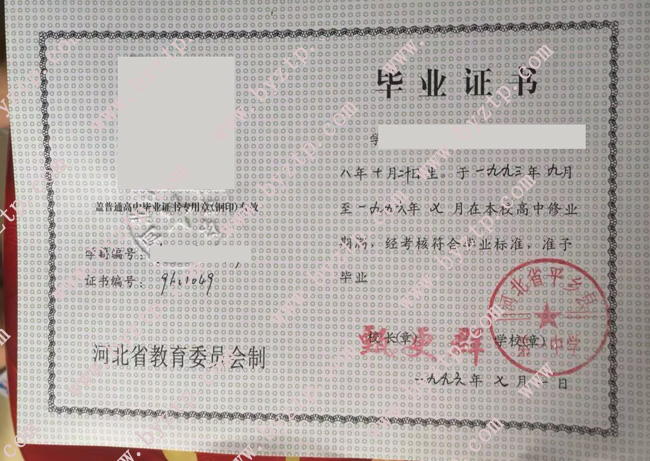 毕业证书
学
八年十月二十七日生。于一九九三年九月
至一九九六年七月在本校高中修业
期满,经考核符合毕业标准,准予
毕业
校长(章) 甄更群 学校(章)
一九九六年七月一日
盖普通高中毕业证书专用章(钢印)有效
学籍编号:
证书编号:
河北省教育委员会制
河北省平乡县
第一中学
www.byztp.com